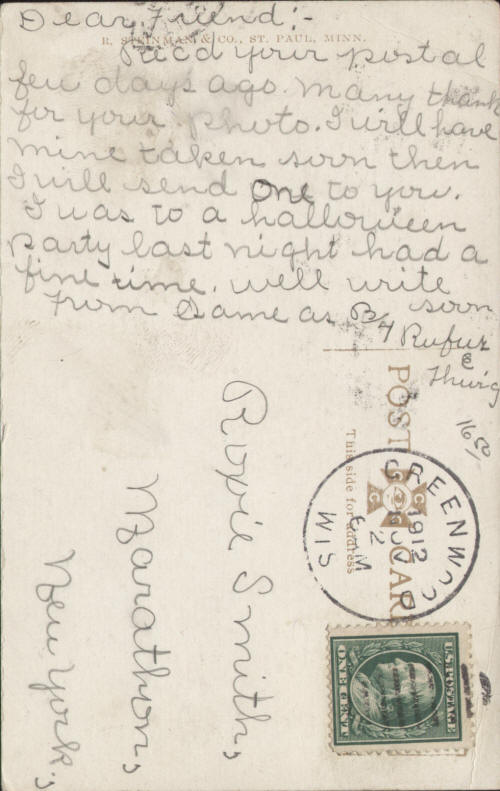 Dear Friend:-
R. STEINMAN & CO., ST. PAUL, MINN.
Recd your postal
few days ago. many thank
for your photo. I will have
mine taken soon then
I will send one to you.
I was to a halloween
party last night had a
fine time. well write
soon
From Same as B/4
Rufus
&
1650
POST CARD
This side for address
GREENWOOD
NOV 2
6 PM
1912
WIS
U.S. POSTAGE
ONE CENT
Smith,
Marathon,
New York.,